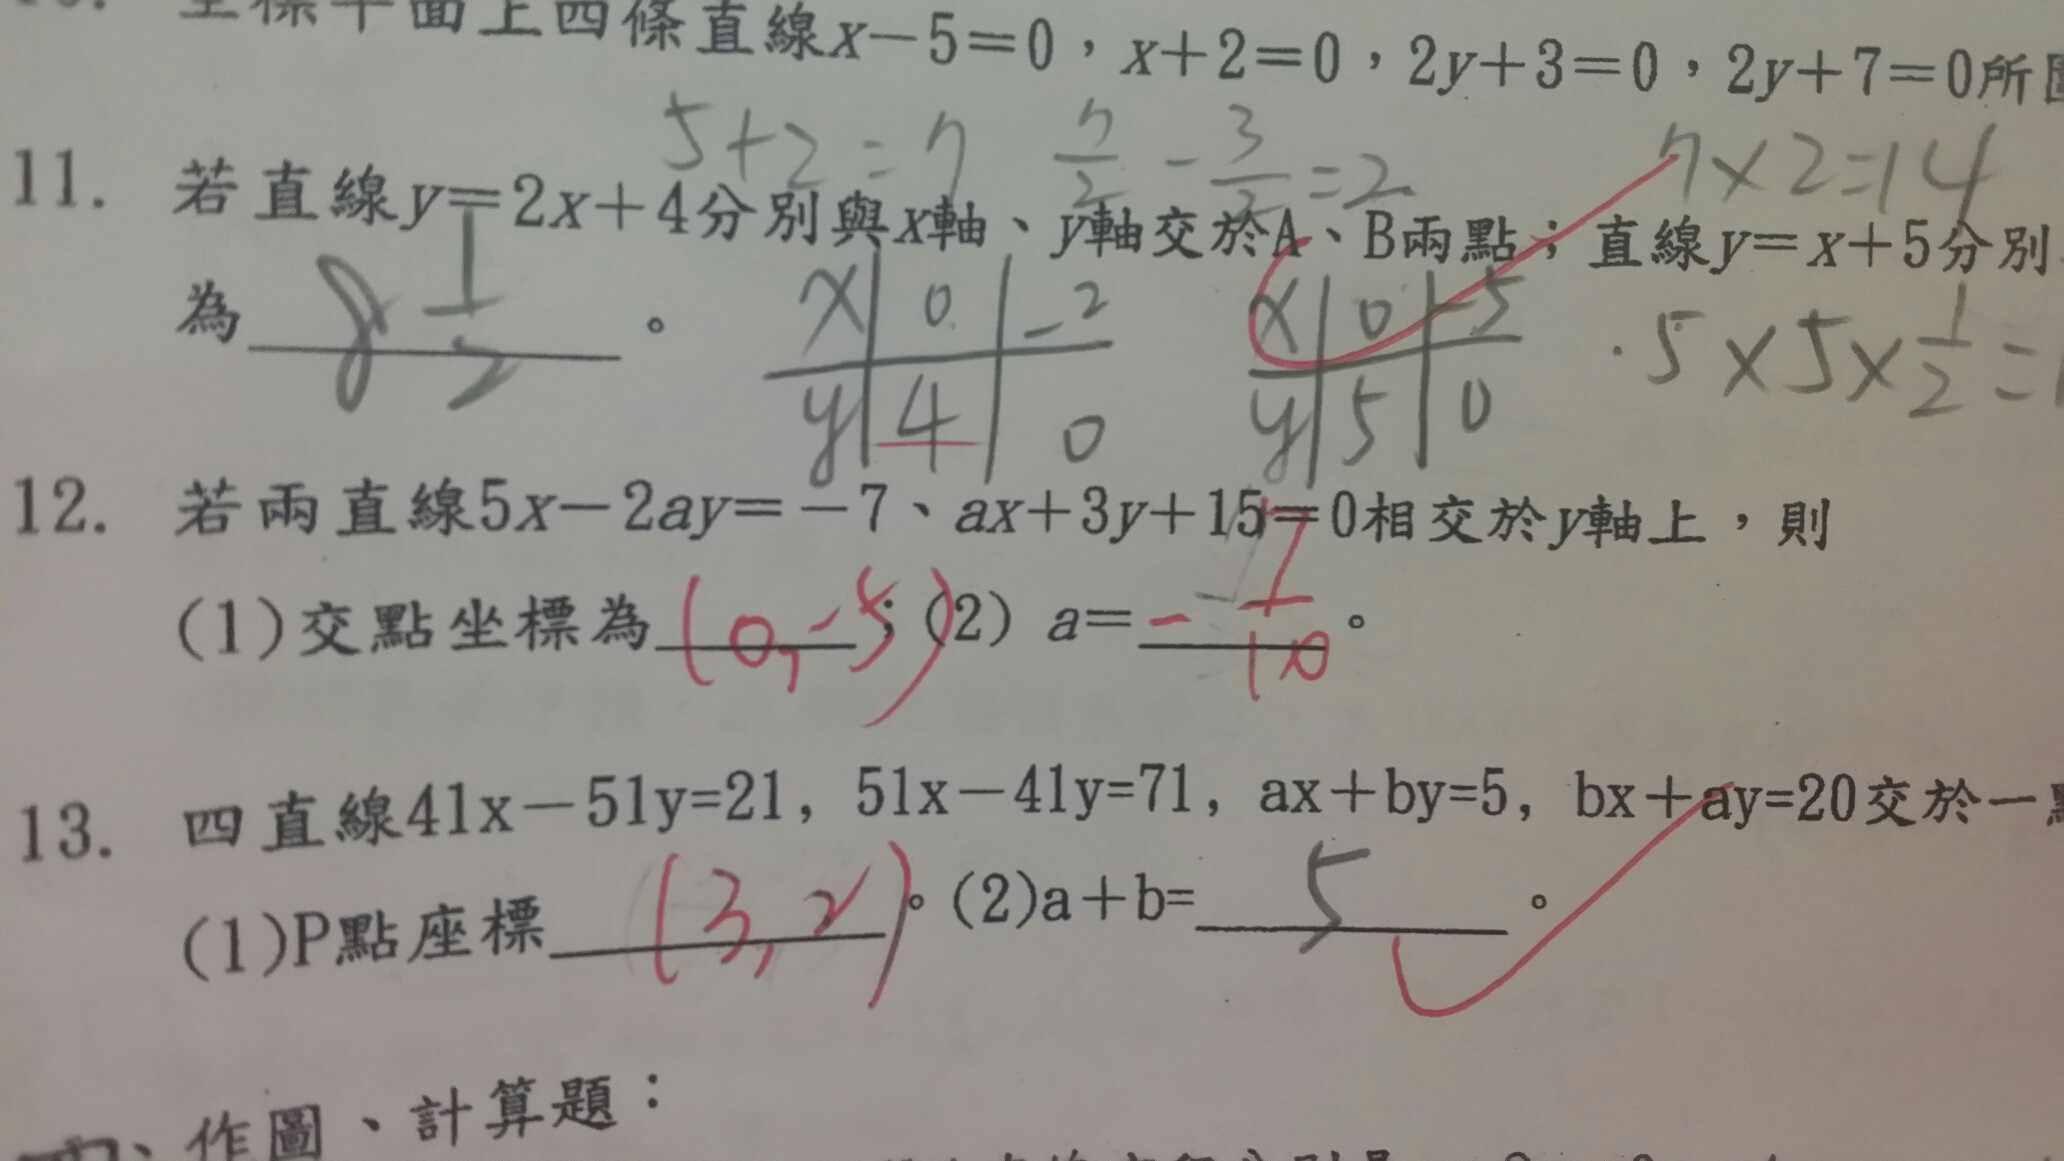 坐標平面上四條直線x－5＝0，x＋2＝0，2y＋3＝0，2y＋7＝0所
5+2=7 7/2 - 3/2 =2 7×2=14
11. 若直線y＝2x＋4分別與x軸、y軸交於A、B兩點；直線y＝x＋5分別
為 8 1/2 。
x 0 -2
y 4 0
x 0 -5
y 5 0
5×5×1/2=
12. 若兩直線5x－2ay＝－7、ax＋3y＋15＝0相交於y軸上，則
(1)交點坐標為 (0,-5) ；(2) a＝ - 7/10 。
13. 四直線41x－51y=21, 51x－41y=71, ax＋by=5, bx＋ay=20交於一
(1)P點座標 (3,2) 。(2)a＋b= 5 。
、作圖、計算題：